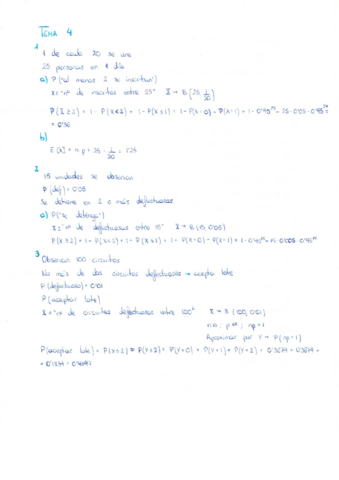 TEMA 4
1
1 de cada 20 se une
25 personas en 1 día
a) P("al menos 2 se inscriban")
X = "nº de inscritos entre 25" X → B(25, 1/20)
P(X ≥ 2) = 1 - P(X < 2) = 1 - P(X ≤ 1) = 1 - P(X=0) - P(X=1) = 1 - 0'95²⁵ - 25 · 0'05 · 0'95²⁴ =
b)
E[X] = n · p = 25 · 1/20 = 1'25
2
15 unidades se observan
P(def) = 0'05
Se detiene en 2 o más defectuosas
a) P("se detenga")
X = "nº de defectuosas entre 15" X → B(15, 0'05)
P(X ≥ 2) = 1 - P(X < 2) = 1 - P(X ≤ 1) = 1 - P(X=0) - P(X=1) = 1 - 0'95¹⁵ - 15 · 0'05 · 0'95¹⁴
3
Observan 100 circuitos
No más de dos circuitos defectuosos → acepta lote
P(defectuoso) = 0'01
P(aceptar lote)
X = "nº de circuitos defectuosos entre 100" X → B(100, 0'01)
Aproximar por Y → P(np = 1)
P(aceptar lote) = P(X ≤ 2) ≈ P(Y ≤ 2) = P(Y=0) + P(Y=1) + P(Y=2) = 0'3679 + 0'3679 +